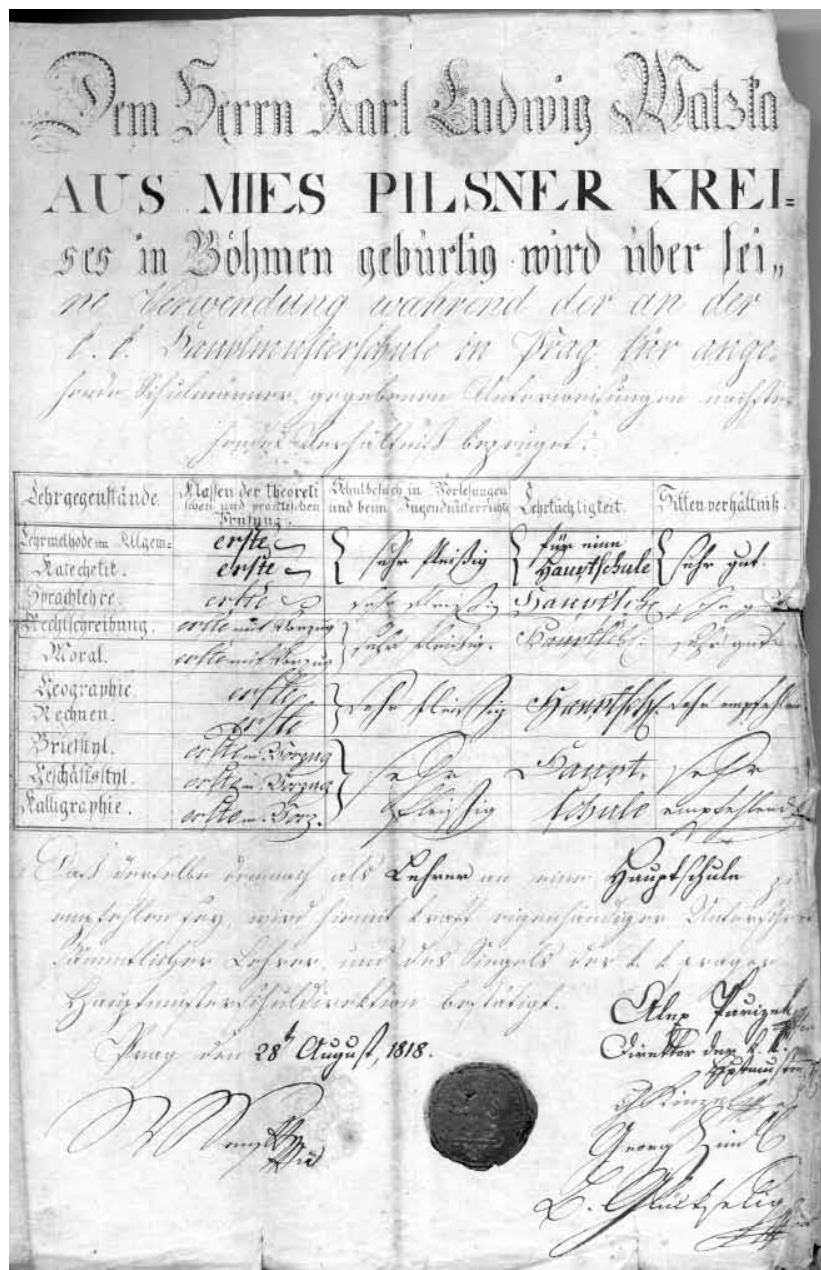 Dem Herrn Karl Ludwig Watzka
AUS MIES PILSNER KREI=
ses in Böhmen gebürtig wird über sei„
ne Verwendung während der an der
k. k. Hauptmusterschule in Prag für ange,
hende Schulmänner gegebenen Unterweisungen nachste,
hendes Verhältniß bezeuget:
Lehrgegenstände. Klassen der theoreti schen und practischen Prüfung. Schulbesuch in Vorlesungen und beim Jugendunterrichte Lehrtüchtigkeit. Sittenverhältniß.
Lehrmethode im Allgem= erste sehr fleißig für eine Hauptschule sehr gut.
Katechetik. erste
Sprachlehre. erste sehr fleissig Hauptsch. sehr gut
Rechtschreibung. erste mit Vorzug sehr fleißig. Hauptsch: sehr gut
Moral. erste mit Vorzug
Geographie erste sehr fleissig Hauptsch. sehr empfehlen
Rechnen. erste
Briefstyl. erste m Vorzug sehr fleissig Haupt. schule sehr empfehlend
Geschäftsstyl. erste m Vorzug
Kalligraphie. erste m. Vorz.
Daß derselbe demnach als Lehrer an eine Hauptschule zu
empfehlen sey, wird hiemit kraft eigenhändiger Unterschrift
sämmtlicher Lehrer, und des Siegels der k. k. prager
Hauptmusterschuldirektion bestätigt.
Prag den 28t August, 1818.
Alex Parizek
Direktor der k. k.
Hptmuster
Georg
Glückselig